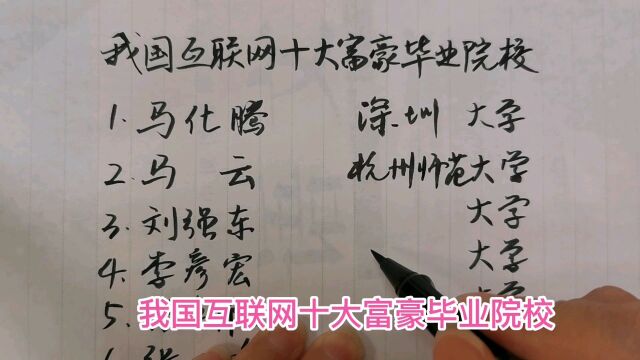 我国互联网十大富豪毕业院校
1. 马化腾 深圳 大学
2. 马云 杭州师范大学
3. 刘强东 大学
4. 李彦宏 大学
5.
我国互联网十大富豪毕业院校